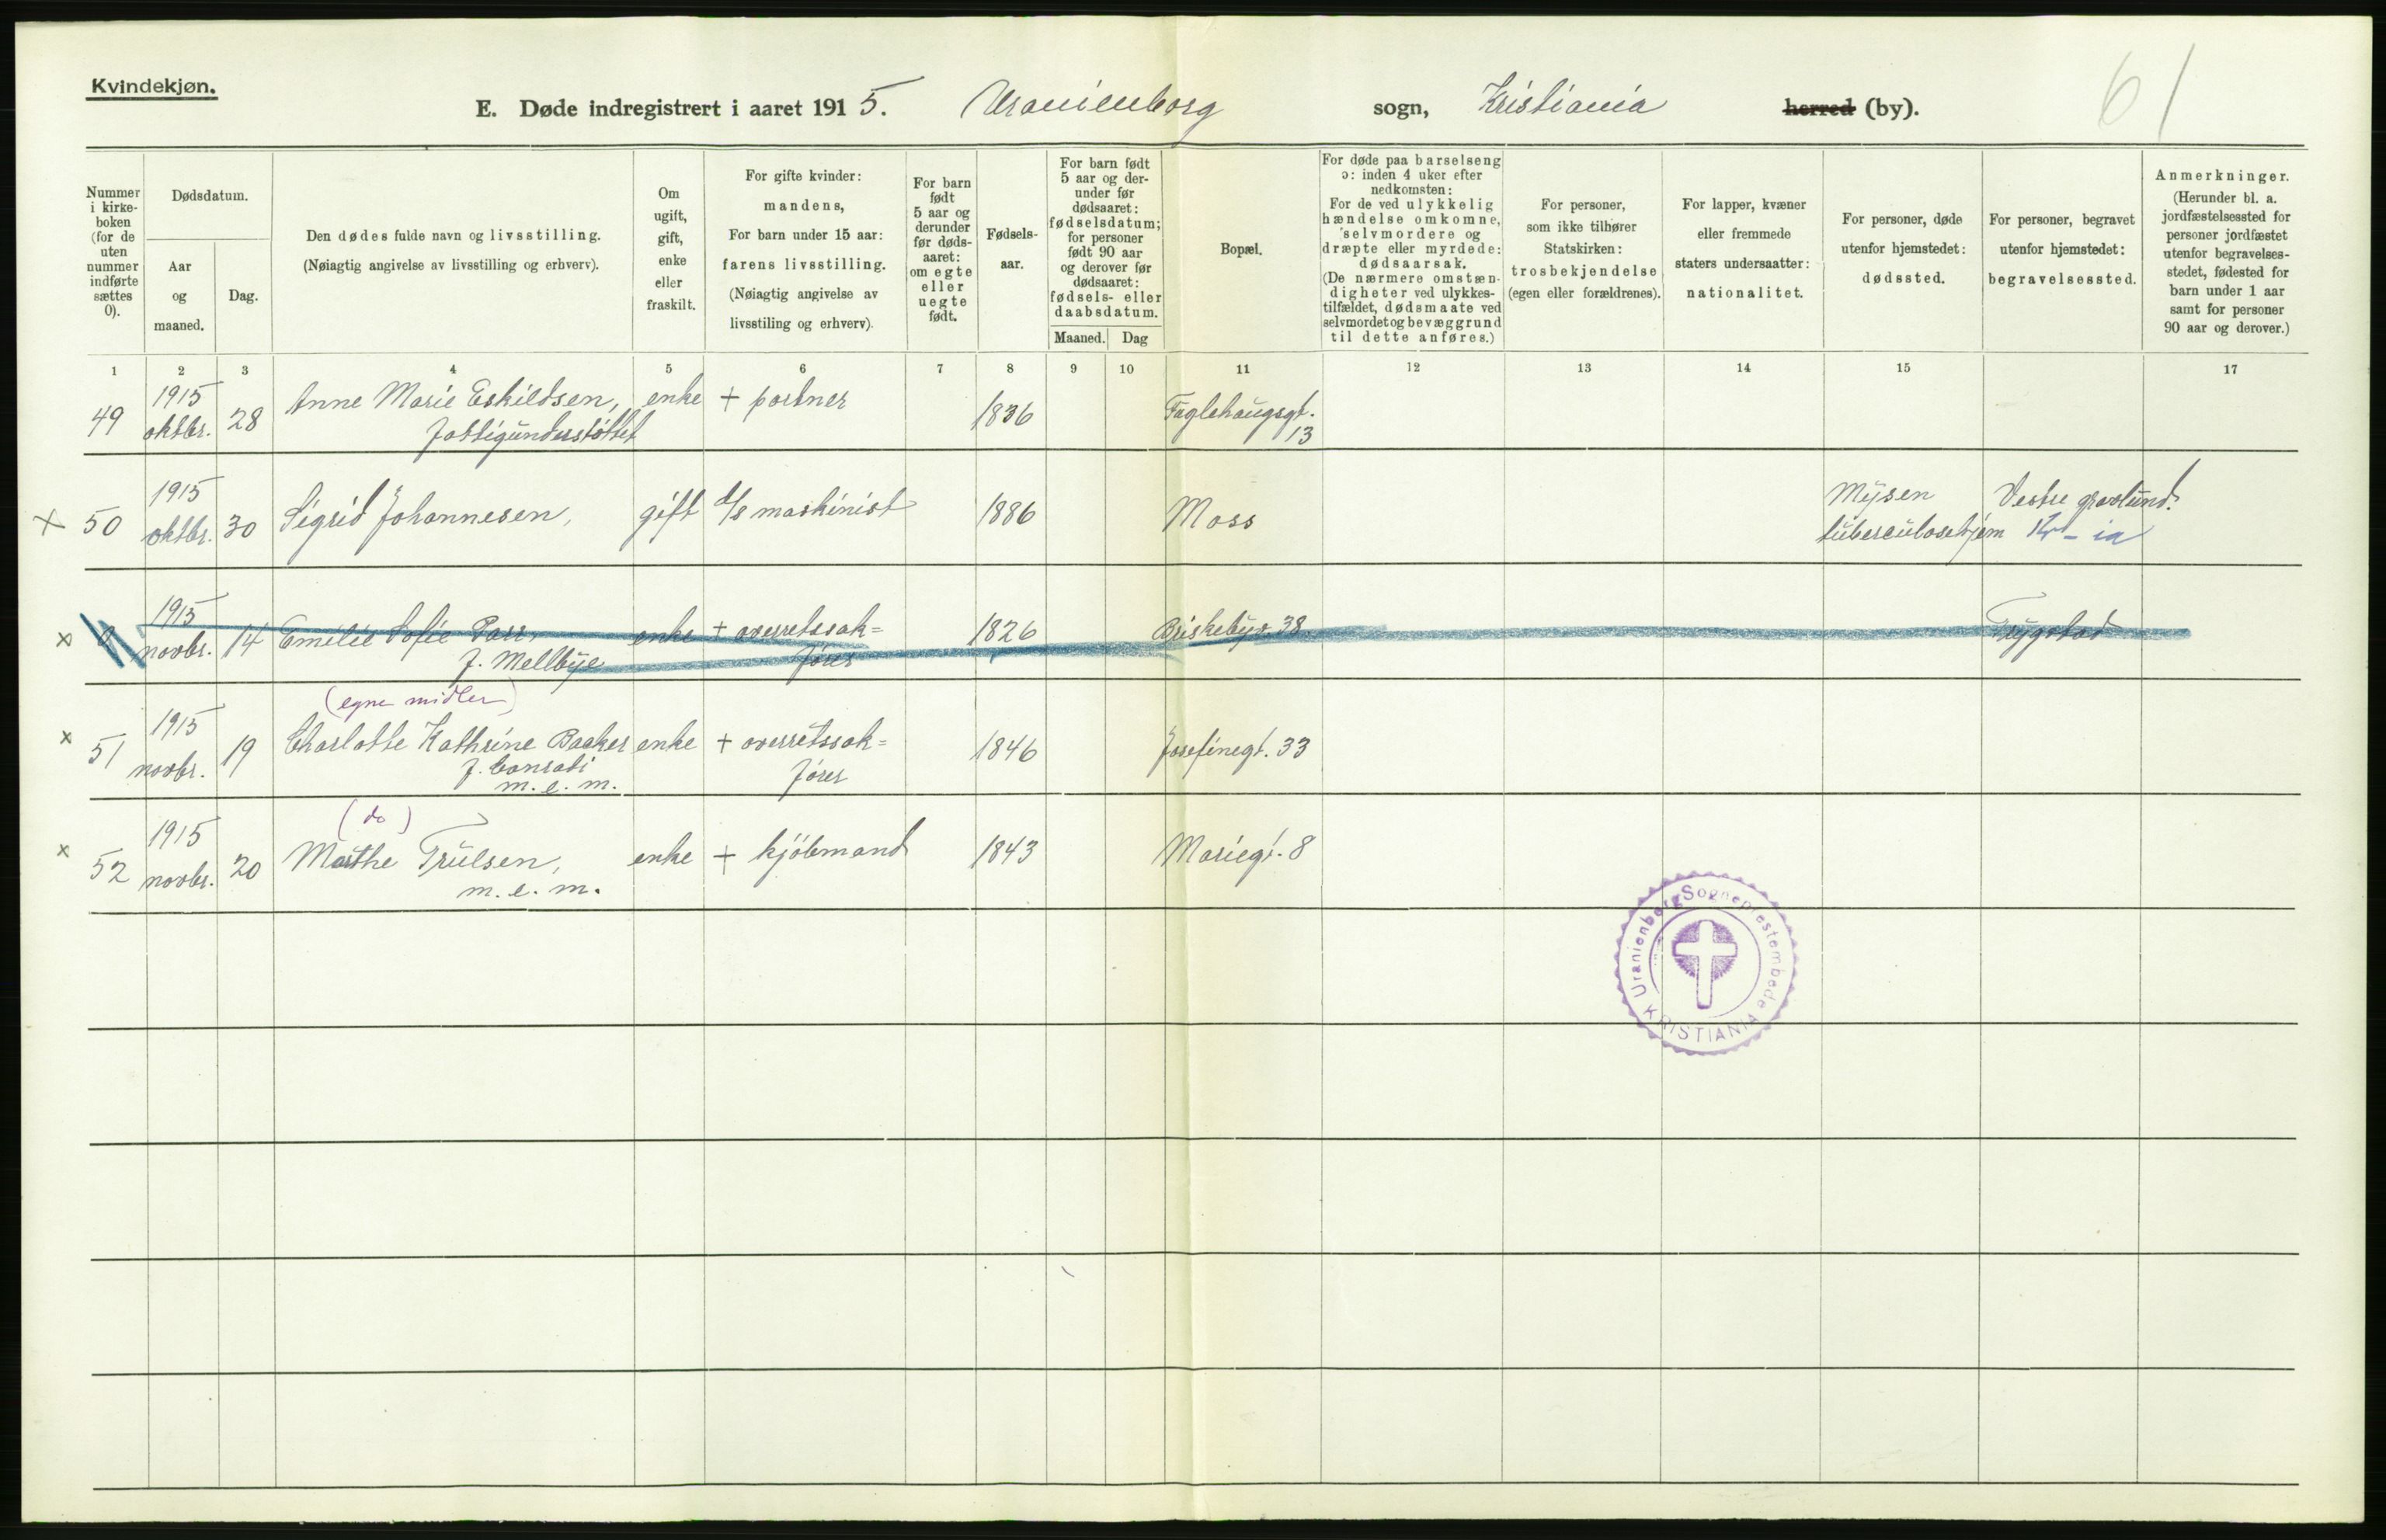 Kvindekjøn.
E. Døde indregistrert i aaret 1915. Uranienborg sogn, Kristiania herred (by).
61
Nummer i kirke-boken (for de uten nummer indførte sættes 0).
Dødsdatum.
Aar og maaned.
Dag.
Den dødes fulde navn og livsstilling.
(Nøiagtig angivelse av livsstilling og erhverv).
Om ugift, gift, enke eller fraskilt.
For gifte kvinder: mandens,
For barn under 15 aar: farens livsstilling.
(Nøiagtig angivelse av livsstiling og erhverv).
For barn født 5 aar og derunder før døds-aaret: om egte eller uegte født.
Fødsels-aar.
For barn født 5 aar og der-under før dødsaaret: fødselsdatum; for personer født 90 aar og derover før dødsaaret: fødsels- eller daabsdatum.
Maaned. Dag
Bopæl.
For døde paa barselseng ɔ: inden 4 uker efter nedkomsten:
For de ved ulykkelig hændelse omkomne, selvmordere og dræpte eller myrdede: dødsaarsak.
(De nærmere omstæn-digheter ved ulykkes-tilfældet, dødsmaate ved selvmordet og bevæggrund til dette anføres.)
For personer, som ikke tilhører Statskirken: trosbekjendelse (egen eller forældrenes).
For lapper, kvæner eller fremmede staters undersaatter: nationalitet.
For personer, døde utenfor hjemstedet: dødssted.
For personer, begravet utenfor hjemstedet: begravelsessted.
Anmerkninger.
(Herunder bl. a. jordfæstelsessted for personer jordfæstet utenfor begravelses-stedet, fødested for barn under 1 aar samt for personer 90 aar og derover.)
1 2 3 4 5 6 7 8 9 10 11 12 13 14 15 17
49 1915 oktbr. 28 Anne Marie Eskildsen, enke + portner 1836 Fuglehaugsgt. 13
fattigunderstöttet
x 50 1915 oktbr. 30 Sigrid Johannesen, gift d/s maskinist 1886 Moss Mysen tuberculosehjem Vestre gravlund. Kr-ia
x 0 1915 novbr. 14 Emilie Sofie Parr, enke + overretssak= förer 1826 Briskebyv. 38 Trygstad
f. Mellbye
(egne midler)
x 51 1915 novbr. 19 Charlotte Kathrine Backer enke + overretssak= förer 1846 Josefinegt. 33
f. Conradi
m. e. m.
(do)
x 52 1915 novbr. 20 Marthe Trulsen, enke + kjöbmand 1843 Mariegt. 8
m. e. m.
Uranienborg Sogneprestembede
KRISTIANIA